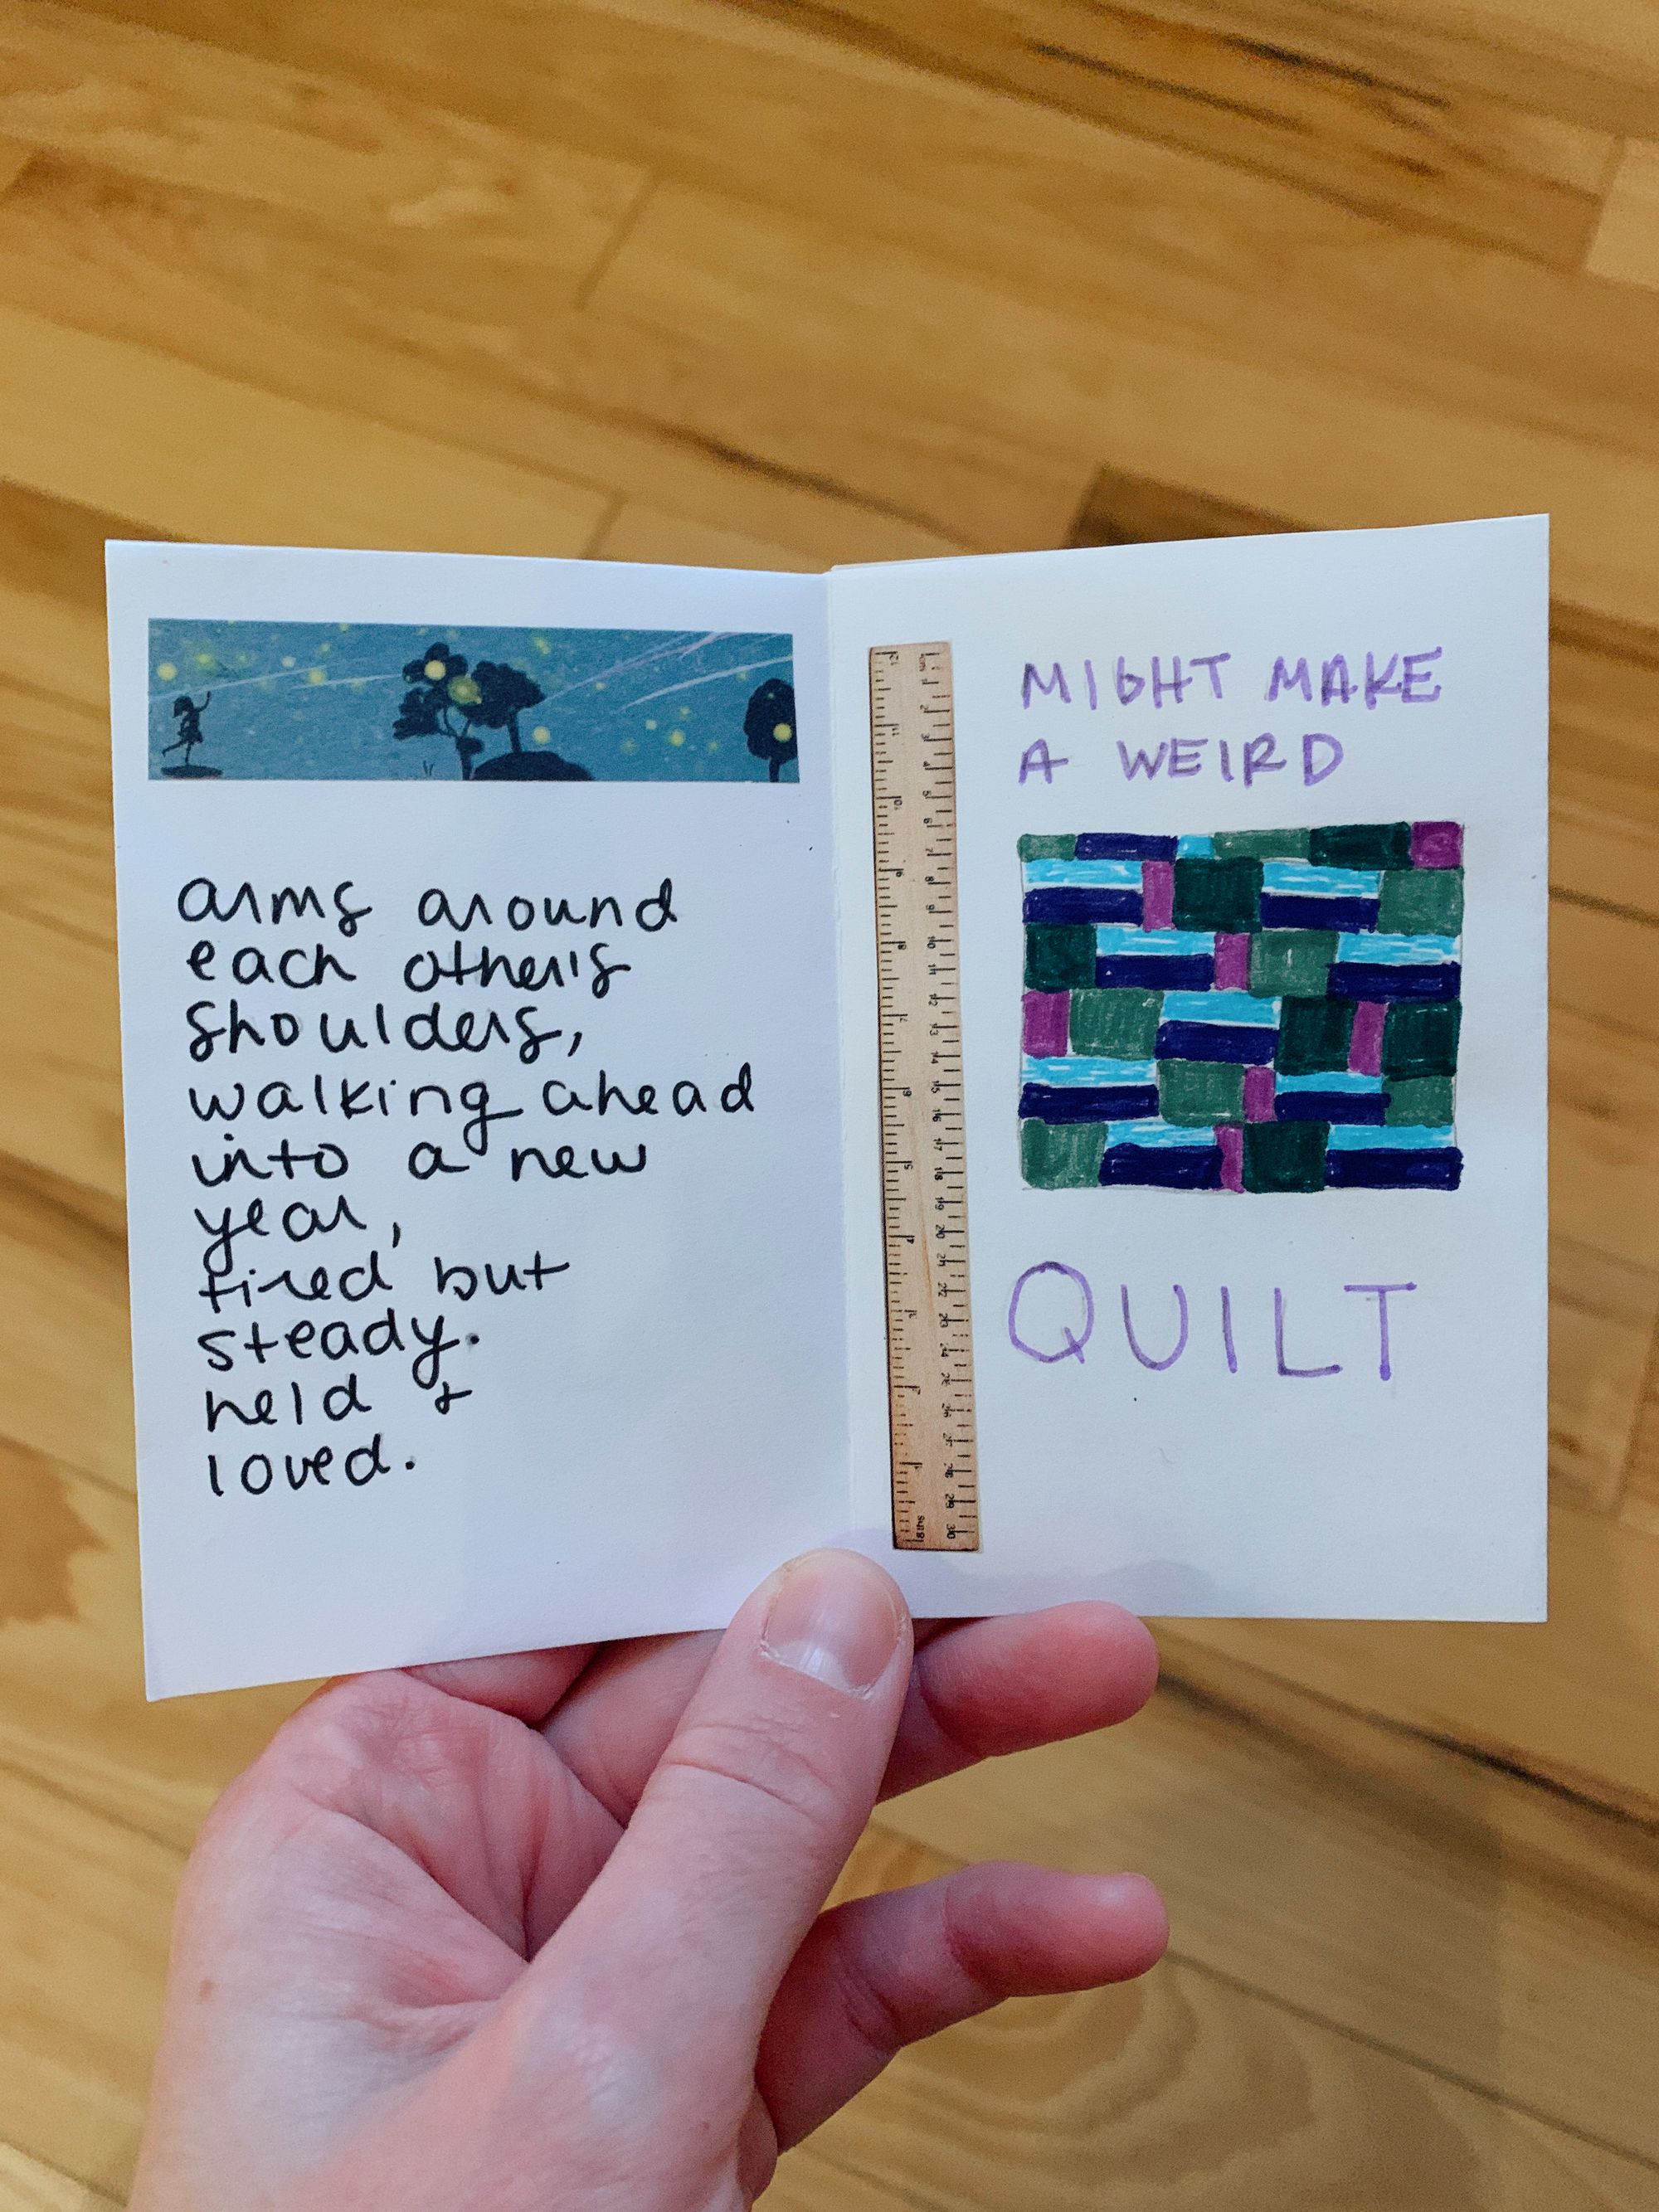 arms around
each other's
shoulders,
walking ahead
into a new
year,
tired but
steady.
held +
loved.
MIGHT MAKE
A WEIRD
QUILT